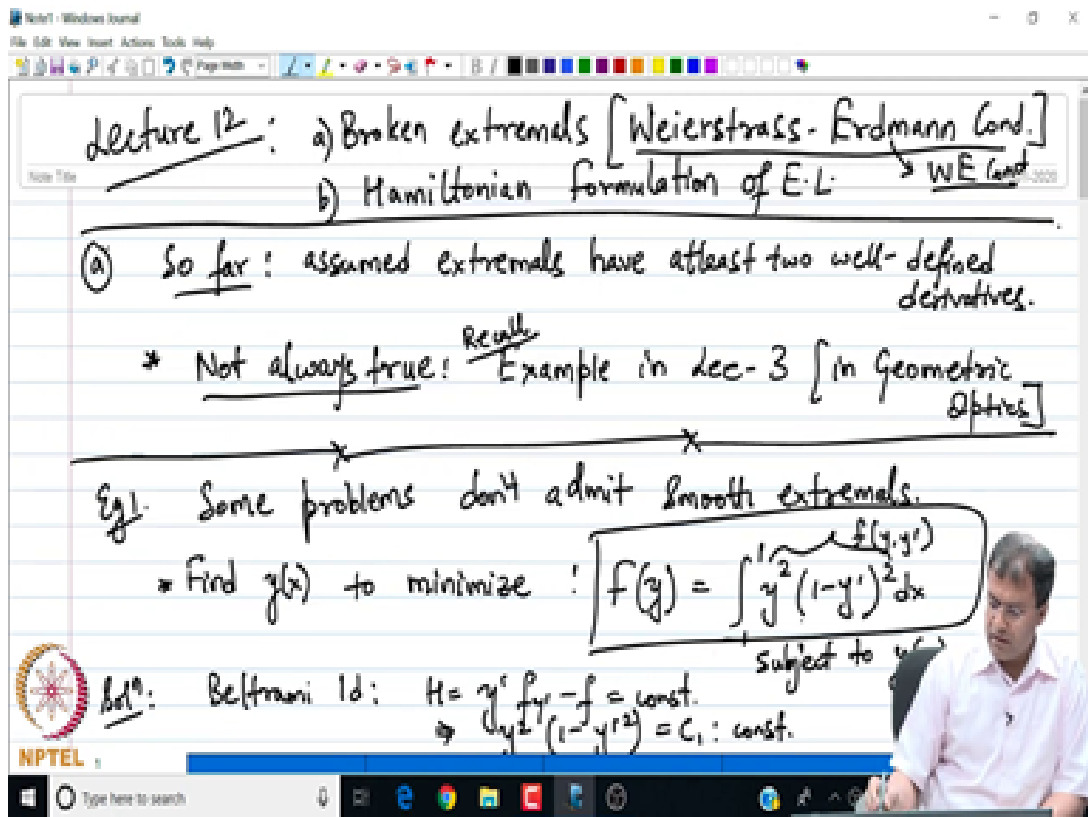 Note1 - Windows Journal
File Edit View Insert Actions Tools Help
Page Width
B I
Lecture 12 : a) Broken extremals [Weierstrass - Erdmann Cond.]
→ WE Cond
Note Title
b) Hamiltonian formulation of E.L.
(a) So far : assumed extremals have atleast two well-defined
derivatives.
* Not always true : Recall Example in Lec-3 [in Geometric
Optics]
Eg1. Some problems don't admit smooth extremals.
f(y,y')
* Find y(x) to minimize : f(y) = ∫ y² (1-y')² dx
subject to
Solⁿ: Beltrami Id: H = y' fy' - f = const.
⇒ y² (1-y'²) = C₁ : const.
NPTEL
Type here to search